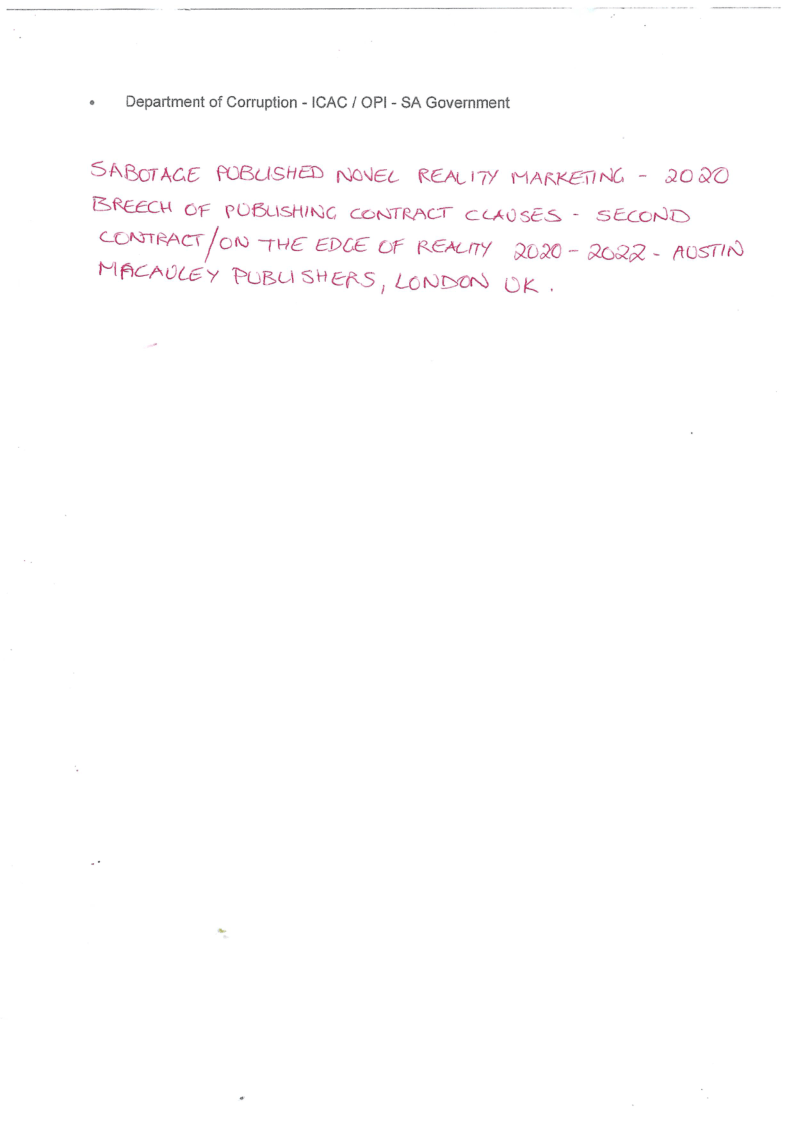 • Department of Corruption - ICAC / OPI - SA Government
SABOTAGE PUBLISHED NOVEL REALITY MARKETING - 2020
BREECH OF PUBLISHING CONTRACT CLAUSES - SECOND
CONTRACT/ON THE EDGE OF REALITY 2020 - 2022 - AUSTIN
MACAULEY PUBLISHERS, LONDON UK.